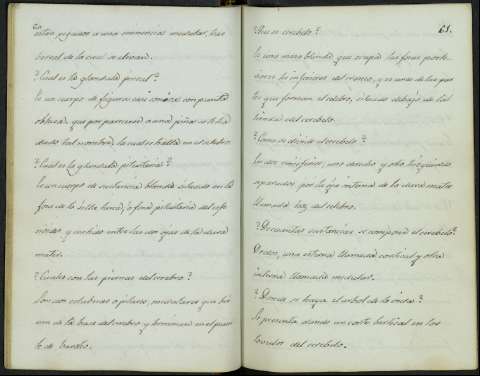 estan pegadas a una eminencia medular, tras
versal de la cual se elevan.
? Cual es la glandula pineal?
Es un cuerpo de figura casi cónica con punta
obtusa, que por parecerse a una piña se le ha
dado tal nombre, la cual se halla en el celebro.
? Cual es la glandula pituitaria?
Es un cuerpo de sustancia blanda situado en la
fosa de la silla turca, o fosa pituitaria del esfe
noides y metido entre las dos ojas de la dura
mater.
? Cuales son las piernas del cerebro?
Son dos columnas o pilares, medulares que
de la base del cerebro y terminan en el puen
te de barolio.
61.
Que es cerebelo?
Es una masa blanda que ocupa las fosas poste
riores e inferiores del craneo, y es una de las par
tes que forman el celebro, situada debajo de la
tienda del cerebelo.
? Como se divide el cerebelo?
En dos emisferios, uno derecho y otro hizquierdo
separados por la oja interna de la dura mater
llamada hoz del celebro.
? De cuantas sustancias se compone el cerebelo?
De dos, una esterna llamada cortical y otra
interna llamada medular.
? Donde se halla el arbol de la vida?
Se presenta dando un corte bertical en los
lovulos del cerebelo.